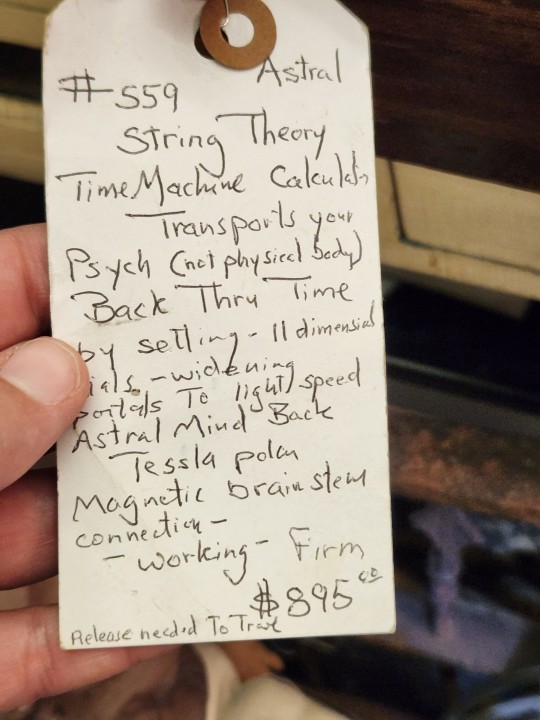 Astral
# 559
String Theory
Time Machine Calculator
Transports your
Psych (not physical body)
Back Thru Time
by setting - 11 dimensial
ials - widening
portals To light speed
Astral Mind Back
Tessla polar
Magnetic brain stem
connection -
- working - Firm
$895.00
Release needed To Travel